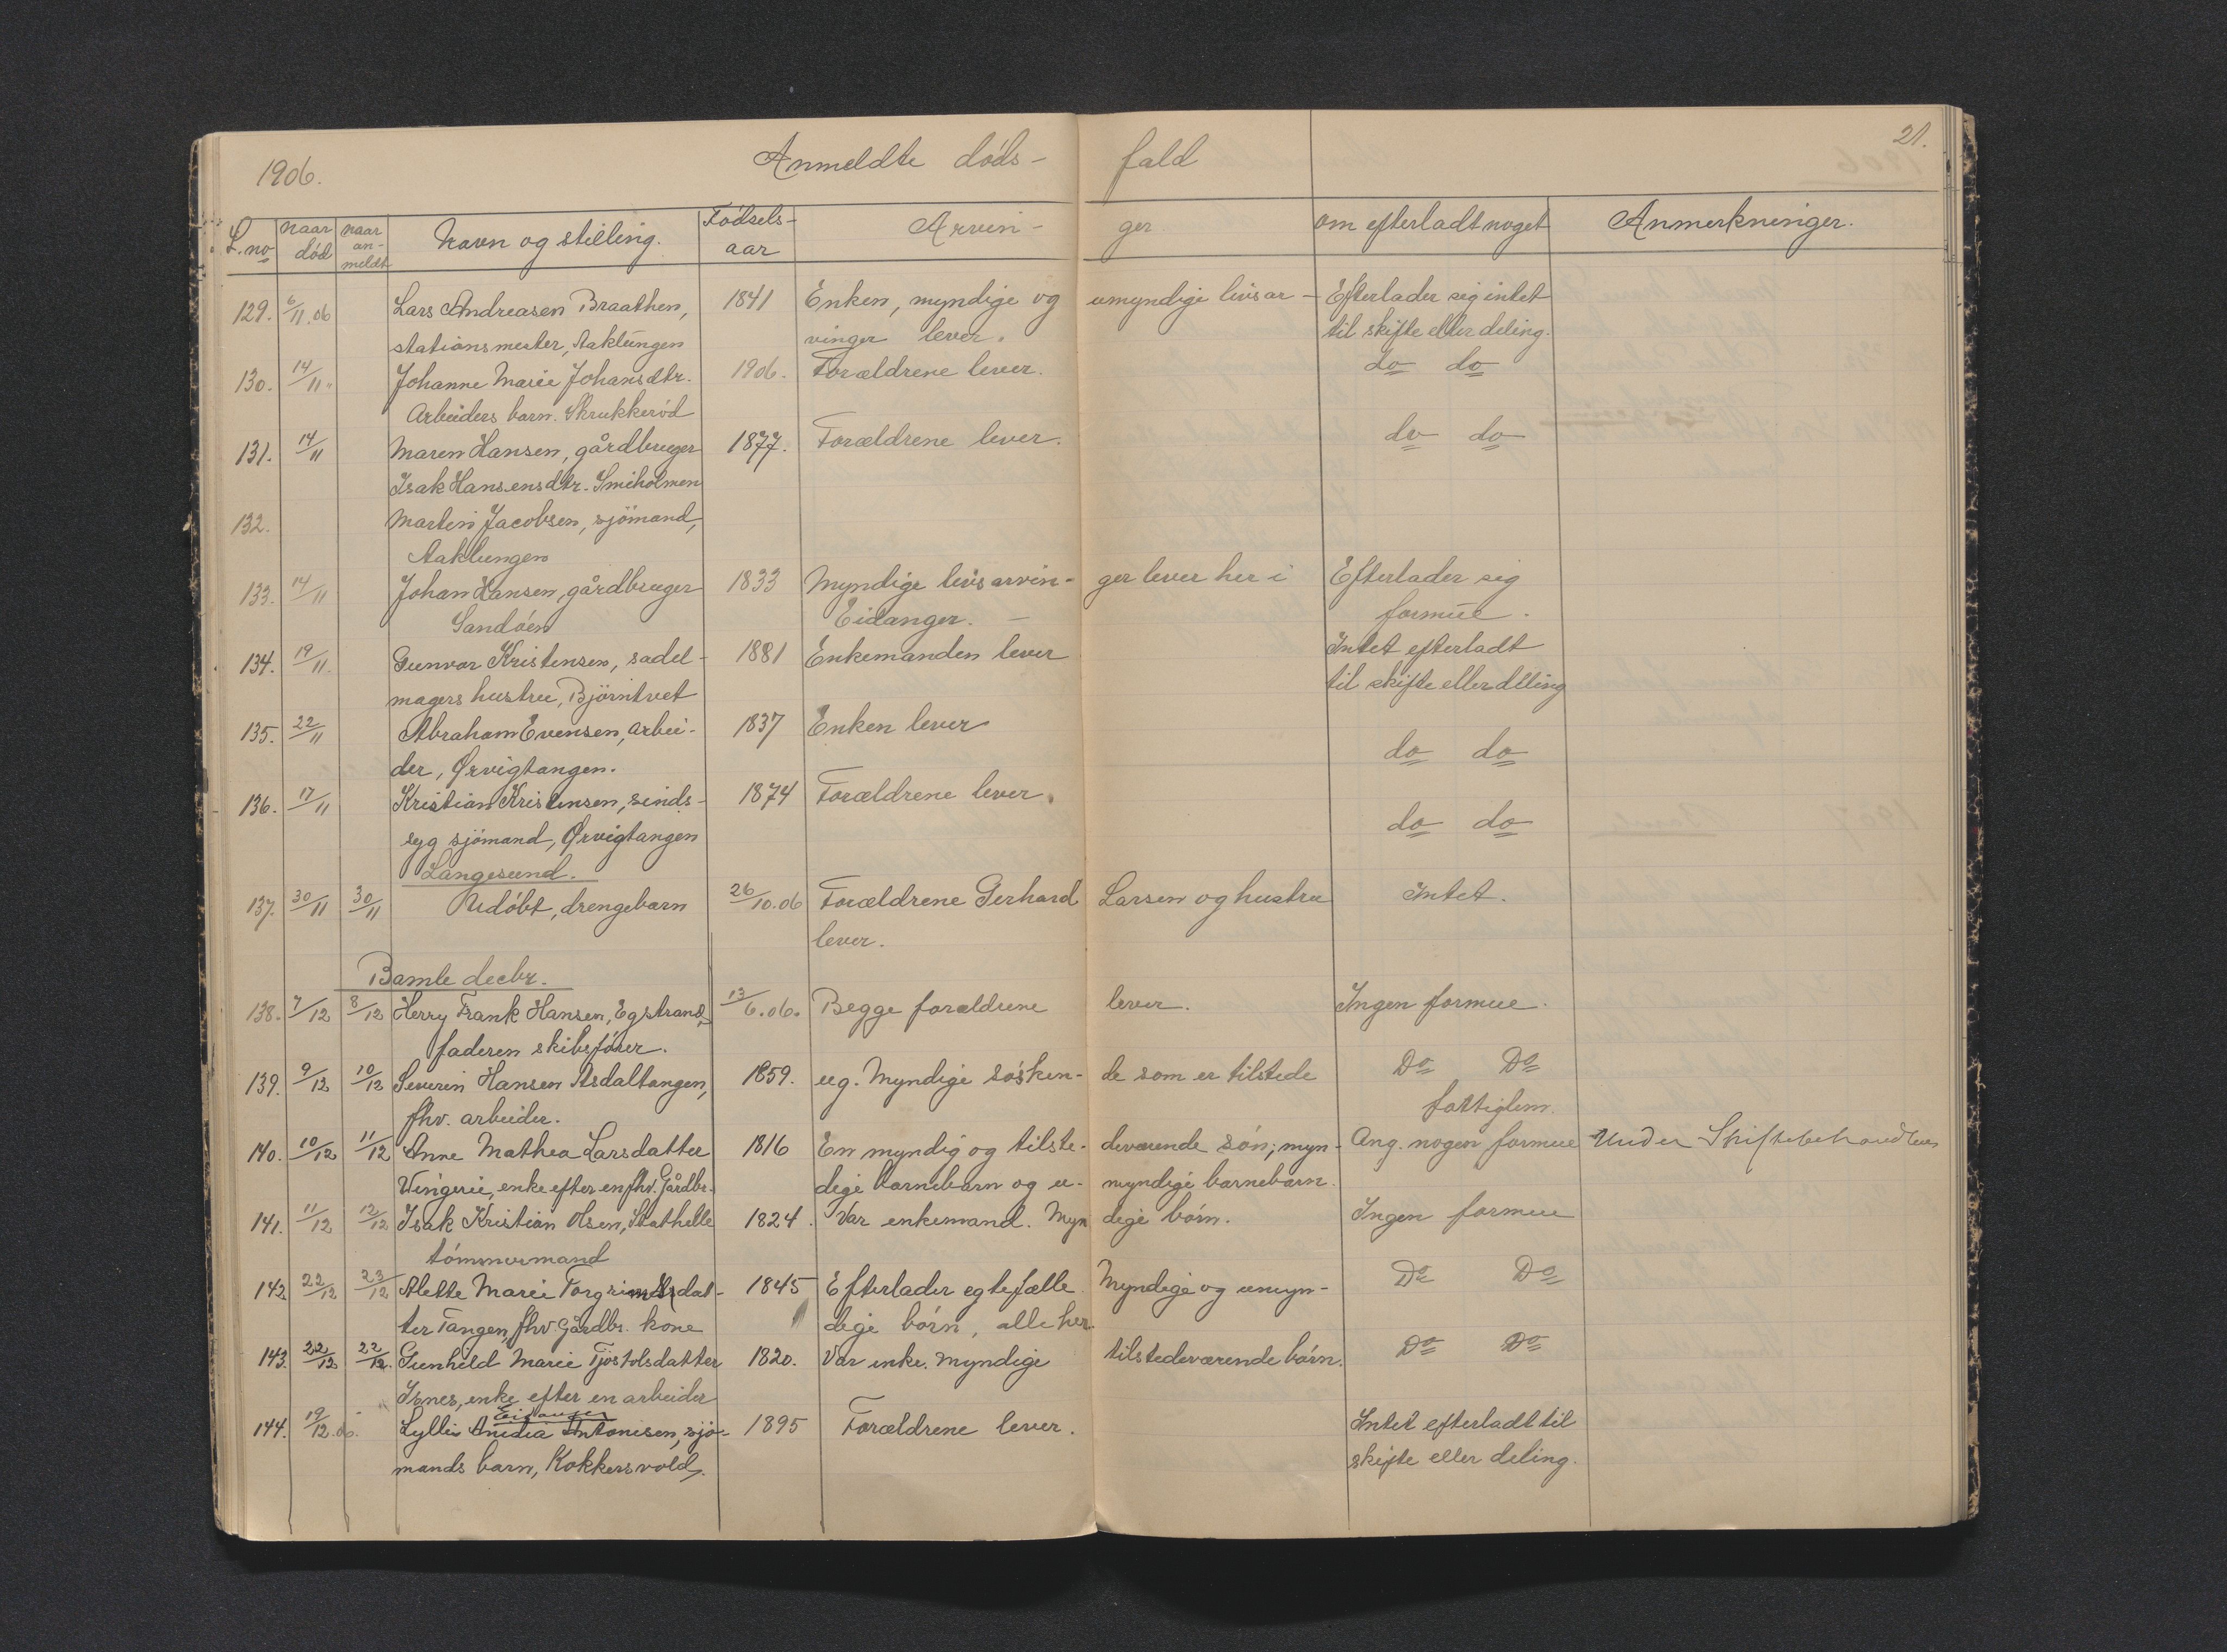 1906. Anmeldte döds- fald 21.
L. no naar död naar an- meldt Navn og stilling. Födsels- aar Arvin- ger om efterladt noget Anmerkninger.
129. 6/11.06 Lars Andreasen Braathen, 1841 Enken, myndige og umyndige livsar- Efterlader sig intet
stationsmester, Aaklungen vinger lever. til skifte eller deling.
130. 14/11" Johanne Marie Johansdtr. 1906. Forældrene lever. do do
Arbeiders barn. Skrukkeröd
131. 14/11 Maren Hansen, gårdbruger 1877. Forældrene lever. do do
Isak Hansens dtr. Smiholmen
132. Martin Jacobsen, sjömand,
Aaklungen
133. 14/11 Johan Hansen, gårdbruger 1833 Myndige livsarvin- ger lever her i Efterlader sig
Sandöen Eidanger. - formue.
134. 19/11. Gunvor Kristensen, sadel- 1881 Enkemanden lever Intet efterladt
magers hustru, Björntvet til skifte eller deling
135. 22/11 Abraham Evensen, arbei- 1837 Enken lever do do
der, Ørvigtangen.
136. 17/11 Kristian Kristensen, sinds- 1874 Forældrene lever. do do
syg sjömand, Ørvigtangen
Langesund.
137. 30/11 30/11 Udöbt, drengebarn 26/10.06 Forældrene Gerhard Larsen og hustru Intet.
lever.
Bamle decbr.
138. 7/12 8/12 Herry Frank Hansen, Egstrand, 13/6.06. Begge forældrene lever. Ingen formue.
faderen skibsförer.
139. 9/12 10/12 Severin Hansen Asdaltangen, 1859. ug. Myndige sösken- de som er tilstede Do Do
fhv. arbeider. fattiglem.
140. 10/12 11/12 Anne Mathea Larsdatter 1816 En myndig og tilste- deværende sön; myn- Ang. nogen formue Under Skiftebehandlen
Vingerie, enke efter en fhv. Gårdbr. dige barnebarn og u- myndige barnebarn.
141. 11/12 12/12 Isak Kristian Olsen, Stathelle 1824. Var enkemand. Myn dige börn. Ingen formue
tömmermand
142 22/12 23/12 Alette Marie Torgrimsdat- 1845 Efterlader egtefælle. Myndige og umyn- Do Do
ter Tangen, fhv. Gårdbr. kone dige börn, alle her.
143. 22/12 22/12. Gunhild Marie Tjöstolsdatter 1820. Var enke. Myndige tilstedeværende börn. Do Do
Isnes, enke efter en arbeider
Eidanger
144. 19/12.06. Lyllis Anidia Antonisen, sjö- 1895 Forældrene lever. Intet efterladt til
mands barn, Kokkersvold. skifte eller deling.